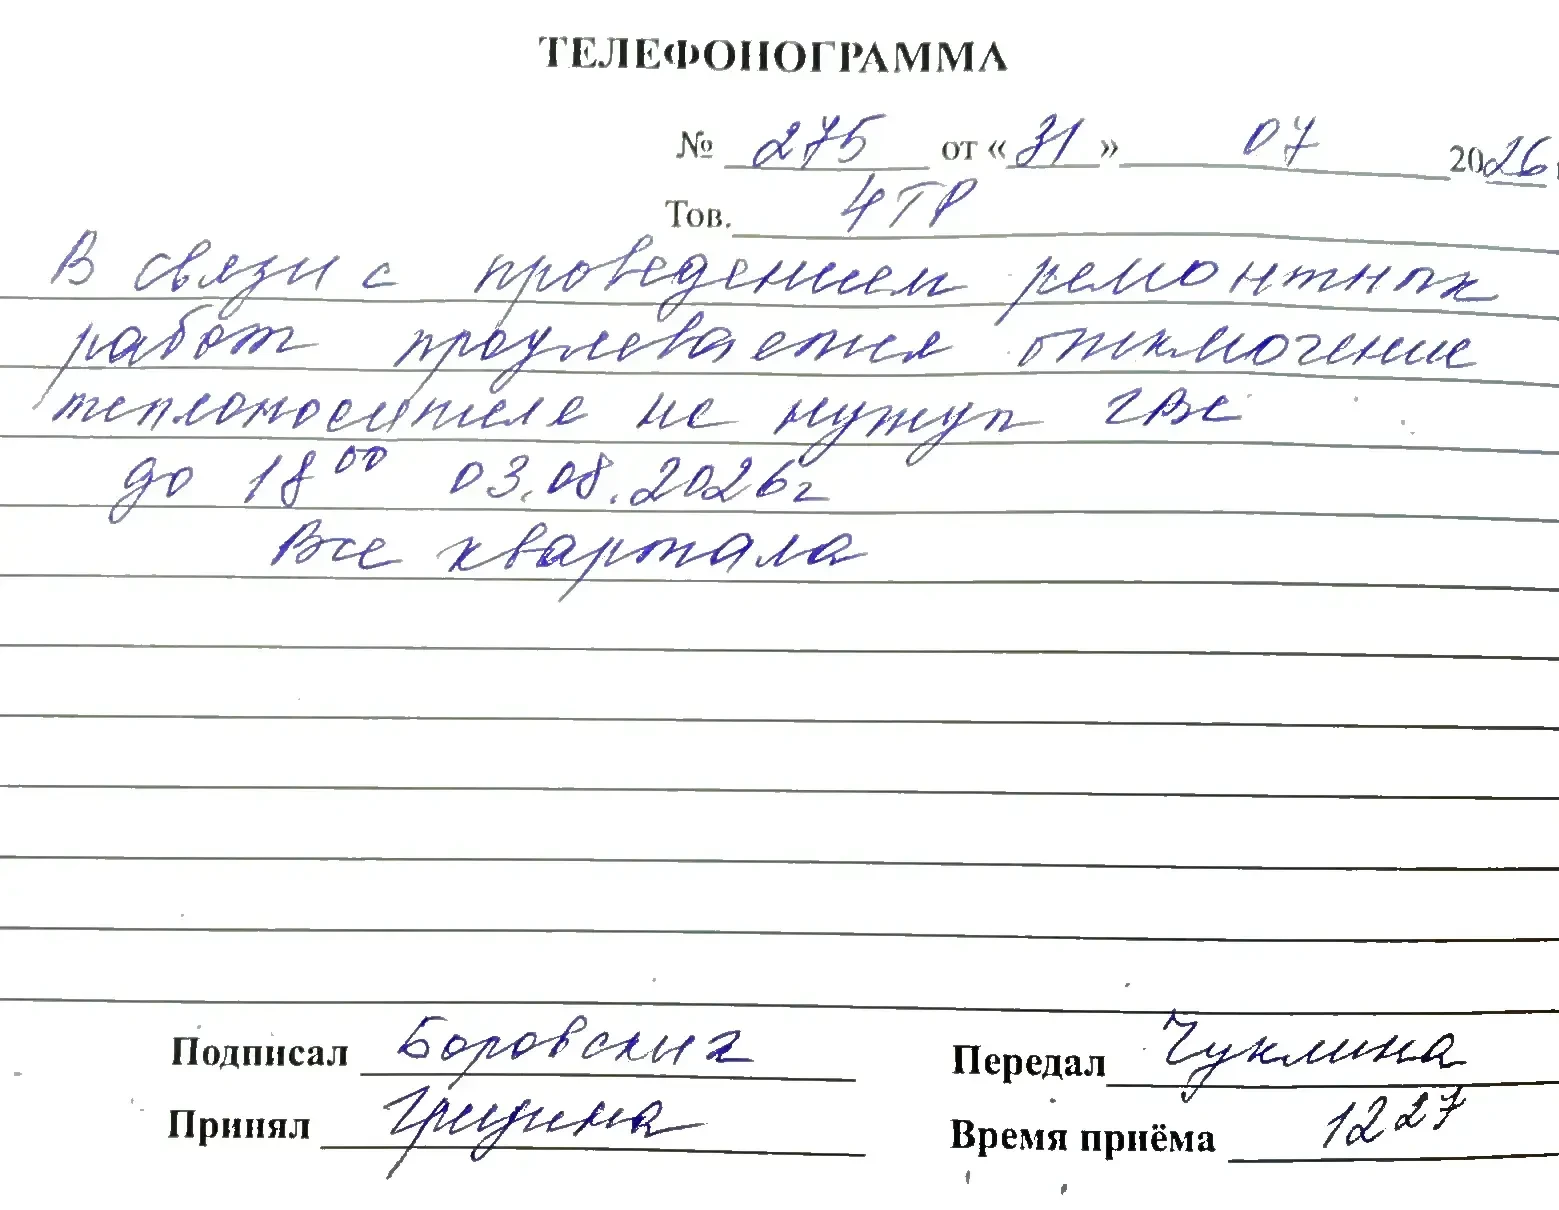 ТЕЛЕФОНОГРАММА
№ 275 от «31» 07 2026г
Тов. 4ТР
В связи с проведением ремонтных
работ продлевается отключение
теплоносителя на нужды ГВС
до 18 00 03.08.2026г
Все квартала
Подписал Боровский Передал Чуклина
Принял Грицина Время приёма 12 27